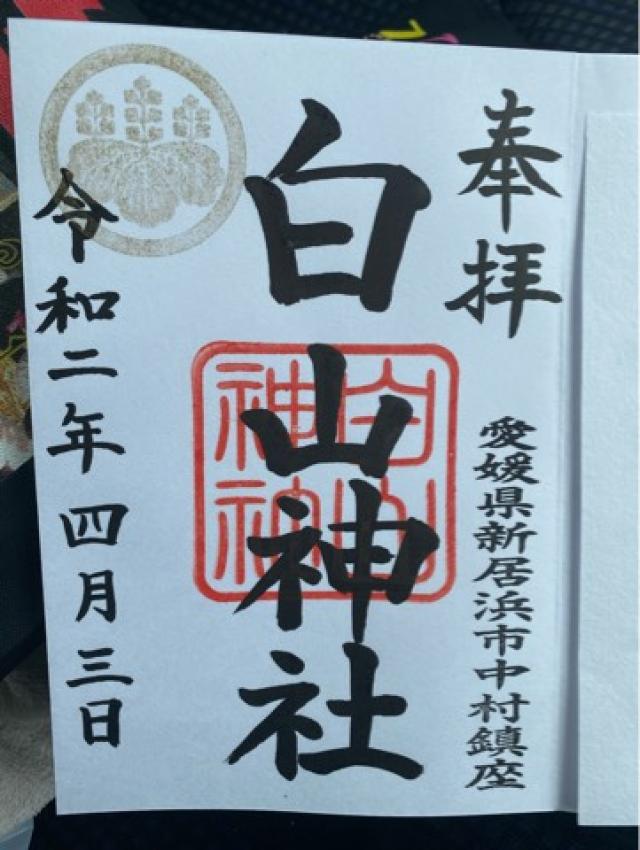 奉拝
愛媛県新居浜市中村鎮座
白山神社
令和二年四月三日